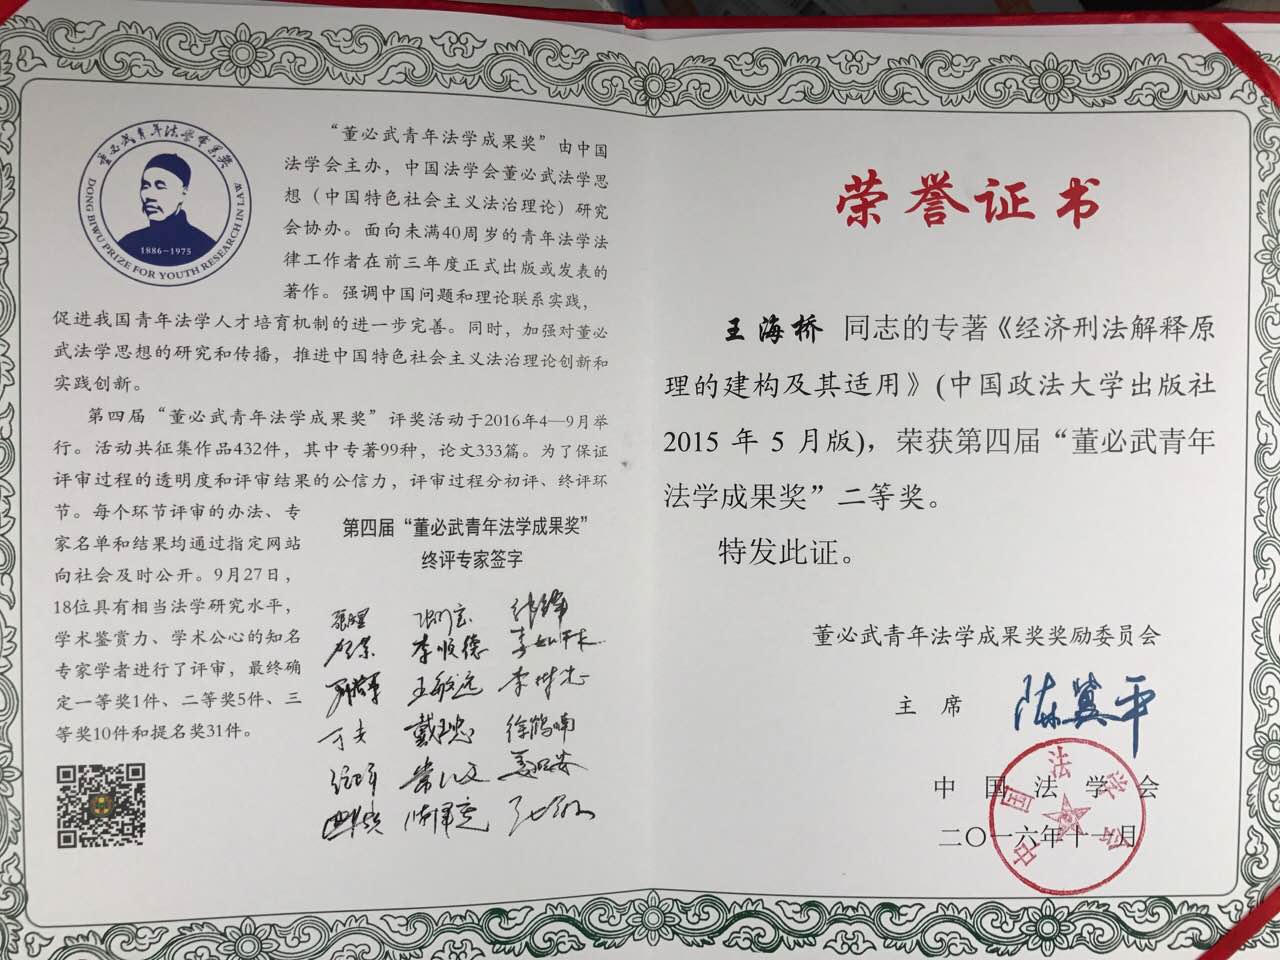 董必武青年法学成果奖
1886-1975
DONG BIWU PRIZE FOR YOUTH RESEARCH IN LAW
“董必武青年法学成果奖”由中国
法学会主办，中国法学会董必武法学思
想（中国特色社会主义法治理论）研究
会协办。面向未满40周岁的青年法学法
律工作者在前三年度正式出版或发表的
著作。强调中国问题和理论联系实践，
促进我国青年法学人才培育机制的进一步完善。同时，加强对董必
武法学思想的研究和传播，推进中国特色社会主义法治理论创新和
实践创新。
第四届“董必武青年法学成果奖”评奖活动于2016年4—9月举
行。活动共征集作品432件，其中专著99种，论文333篇。为了保证
评审过程的透明度和评审结果的公信力，评审过程分初评、终评环
节。每个环节评审的办法、专
家名单和结果均通过指定网站
向社会及时公开。9月27日，
18位具有相当法学研究水平，
学术鉴赏力、学术公心的知名
专家学者进行了评审，最终确
定一等奖1件、二等奖5件、三
等奖10件和提名奖31件。
第四届“董必武青年法学成果奖”
终评专家签字
李顺德
王敏远
徐鹤喃
荣誉证书
王海桥 同志的专著《经济刑法解释原
理的建构及其适用》(中国政法大学出版社
2015 年 5 月版)，荣获第四届“董必武青年
法学成果奖”二等奖。
特发此证。
董必武青年法学成果奖奖励委员会
主 席 陈冀平
中 国 法 学 会
二〇一六年十一月
中国法学会